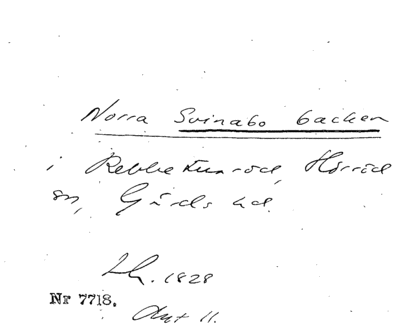 Norra Svinabo backen
i Rebbetuaröd, Hörröd
sn, Gärds hd.
Lh. 1828
Nr 7718.
Akt 11.